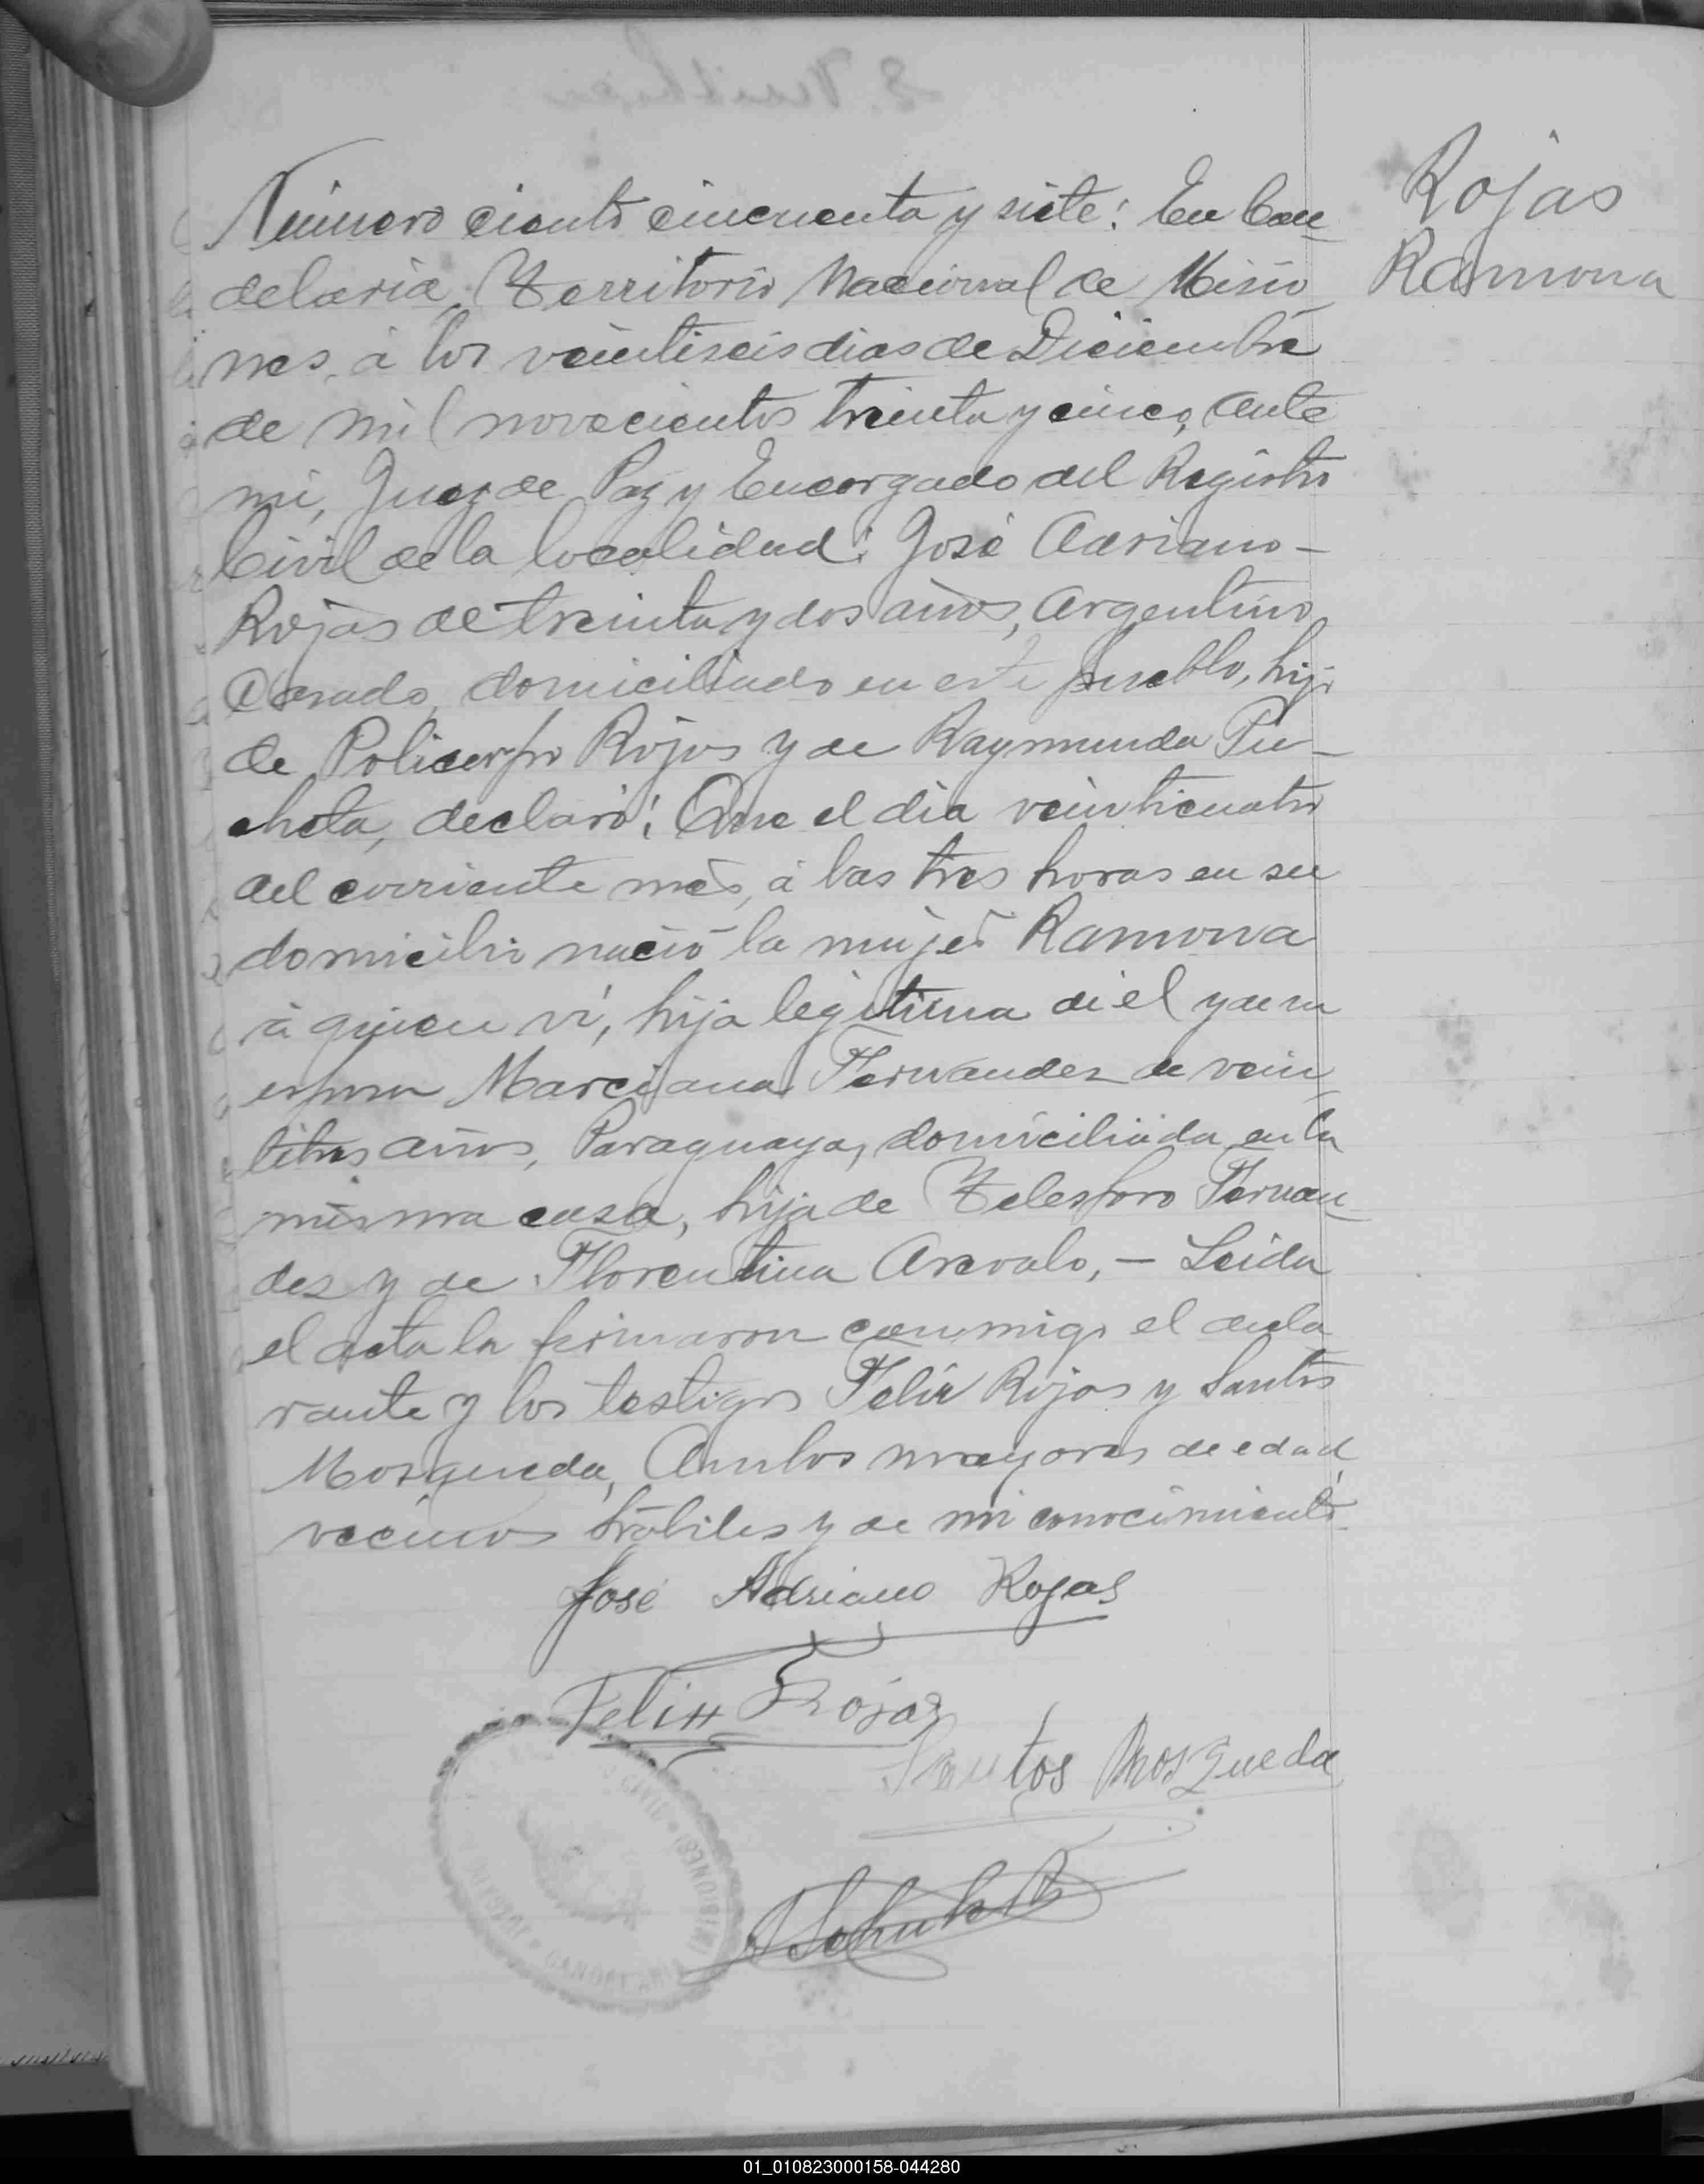 Rojas
Ramona
Número ciento cincuenta y siete: En Can-
delaria, Territorio Nacional de Misio-
nes, á los veintiseis dias de Diciembre
de mil novecientos treinta y cinco, ante
mi, Juez de Paz y Encargado del Registro
Civil de la localidad: José Adriano-
Rojas de treinta y dos años, Argentino,
Casado, domiciliado en este pueblo, hijo
de Policarpo Rojas y de Raymunda Pu-
cheta, declaró: Que el dia veinticuatro
del corriente mes, á las tres horas en su
domicilio nació la mujer Ramona
á quien ví, hija legitima de el y de su
esposa Marciana Fernandez de vein-
titres años, Paraguaya, domiciliada en la
misma casa, hija de Telesforo Fernan-
dez y de Florentina Arevalo, - Leida
el acta la firmaron conmigo el decla
rante y los testigos Felix Rojas y Santos
Mosqueda, Ambos mayores de edad,
vecinos hábiles y de mi conocimiento.
José Adriano Rojas
Felix Rojas
Santos Mosqueda
CIVIL • (MISIONES)
01_010823000158-044280